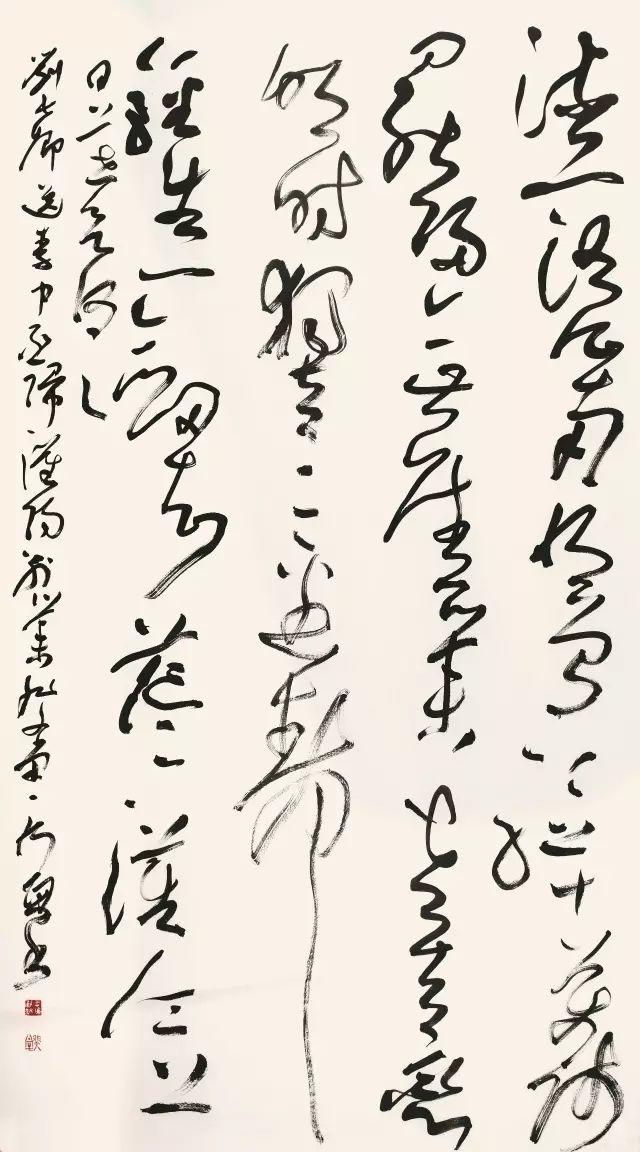 流落征南將曾驅十萬師
罷歸無舊業老去戀
明時獨立三邊靜
輕生一劍知茫茫漢江上
日暮欲何之
劉長卿送李中丞歸漢陽別業 書